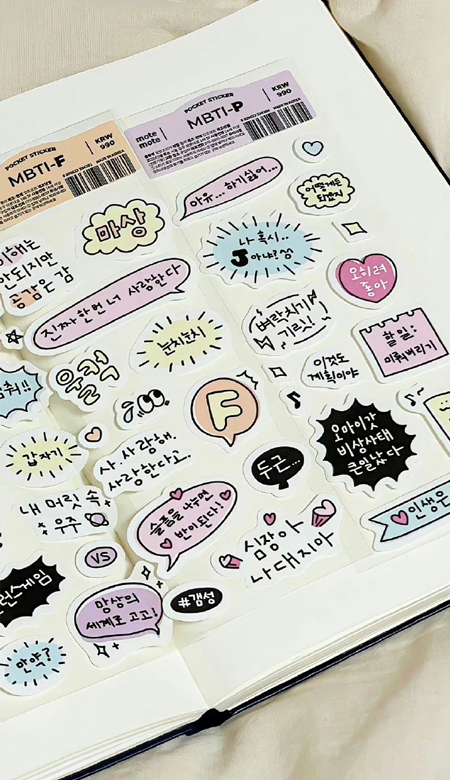 POCKET STICKER
MBTI-F
KRW
990
POCKET STICKER
mote
mote
MBTI-P
KRW
990
마상
이해는
안되지만
공감은 감
진짜 한번 너 사랑한다
눈치눈치
멈춰!!
갑자기
사.. 사랑해.
사랑한다고.
F
내 머릿 속
우주
VS
슬픔을 나누면
반이 된다!
두근...
심장아
나대지마
런스게임
망상의
세계로 고고!
#갬성
안야?
아유... 하기싫어...
어떻게든
되겠지
나 혹시..
J 아냐?
오히려
좋아
벼락치기
기린!
할 일:
미뤄버리기
이것도
계획이야
오마이갓
비상사태
큰일났다
인생은